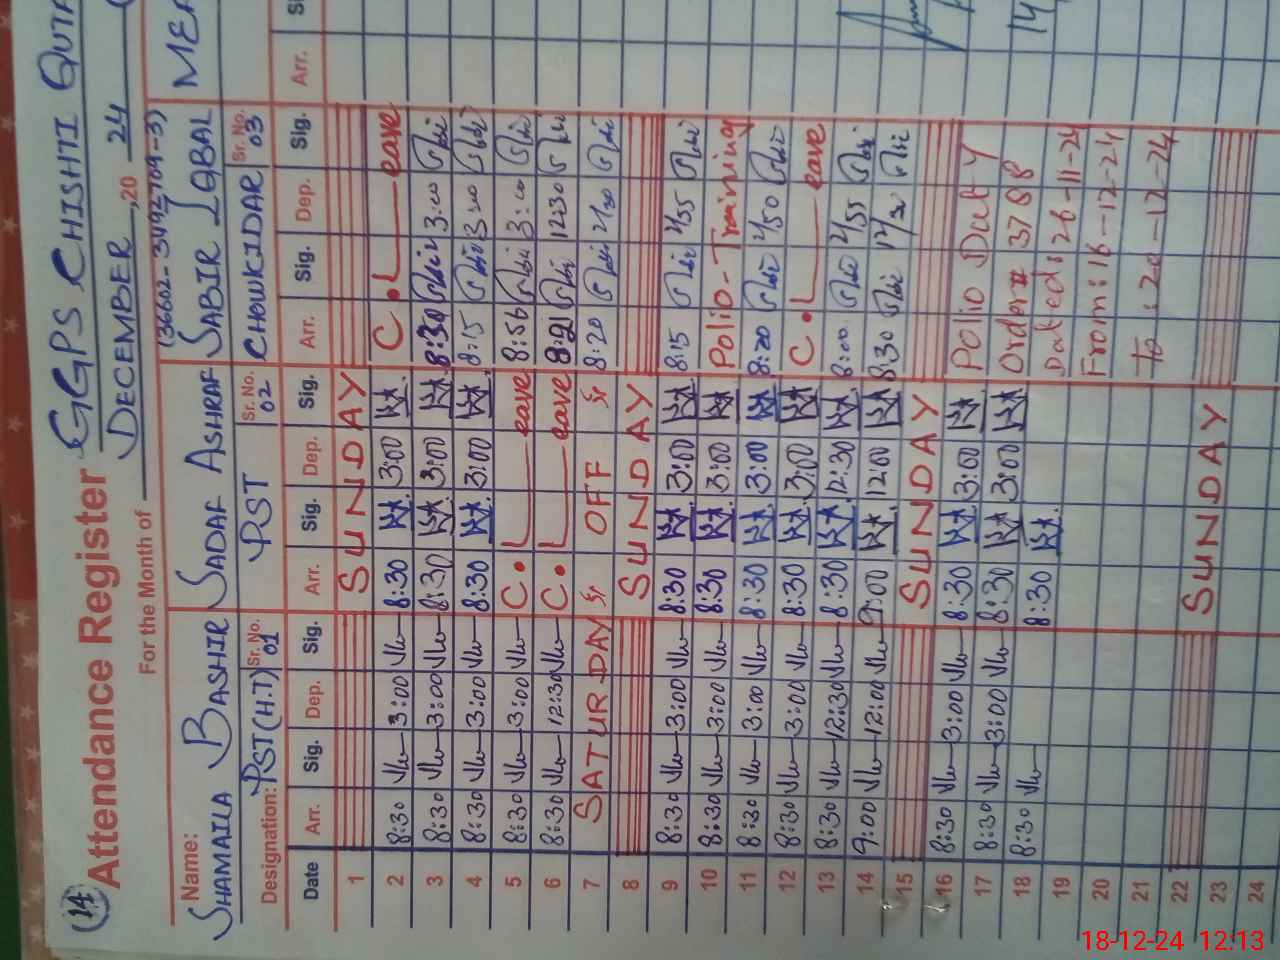 14
Attendance Register GGPS CHISHTI
For the Month of DECEMBER ,20 24
Name: SHAMAILA BASHIR SADAF ASHRAF (36602-3492709-3) SABIR IQBAL
Designation: PST (H.T) Sr. No. 01 PST Sr. No. 02 CHOWKIDAR Sr. No. 03
Date Arr. Sig. Dep. Sig. Arr. Sig. Dep. Sig. Arr. Sig. Dep. Sig. Arr.
1 SUNDAY
2 8:30 3:00 8:30 3:00 C.Leave
3 8:30 3:00 8:30 3:00 8:30 3:00
4 8:30 3:00 8:30 3:00 8:15 3:00
5 8:30 3:00 C.Leave 8:56 3:00
6 8:30 12:30 C.Leave 8:21 1230
7 SATURDAY OFF 8:20
8 SUNDAY
9 8:30 3:00 8:30 3:00 8:15 2/55
10 8:30 3:00 8:30 3:00 Polio-Training
11 8:30 3:00 8:30 3:00 8:20 2/50
12 8:30 3:00 8:30 3:00 C.Leave
13 8:30 12:30 8:30 12:30 8:00 2/55
14 9:00 12:00 9:00 12:00 8:30 12/30
15 SUNDAY
16 8:30 3:00 8:30 3:00 Polio Duty
17 8:30 3:00 8:30 3:00 Order # 3788
18 8:30 8:30 Dated: 26-11-24
19 From: 16-12-24
20 to: 20-12-24
21
22 SUNDAY
23
24
18-12-24 12:13